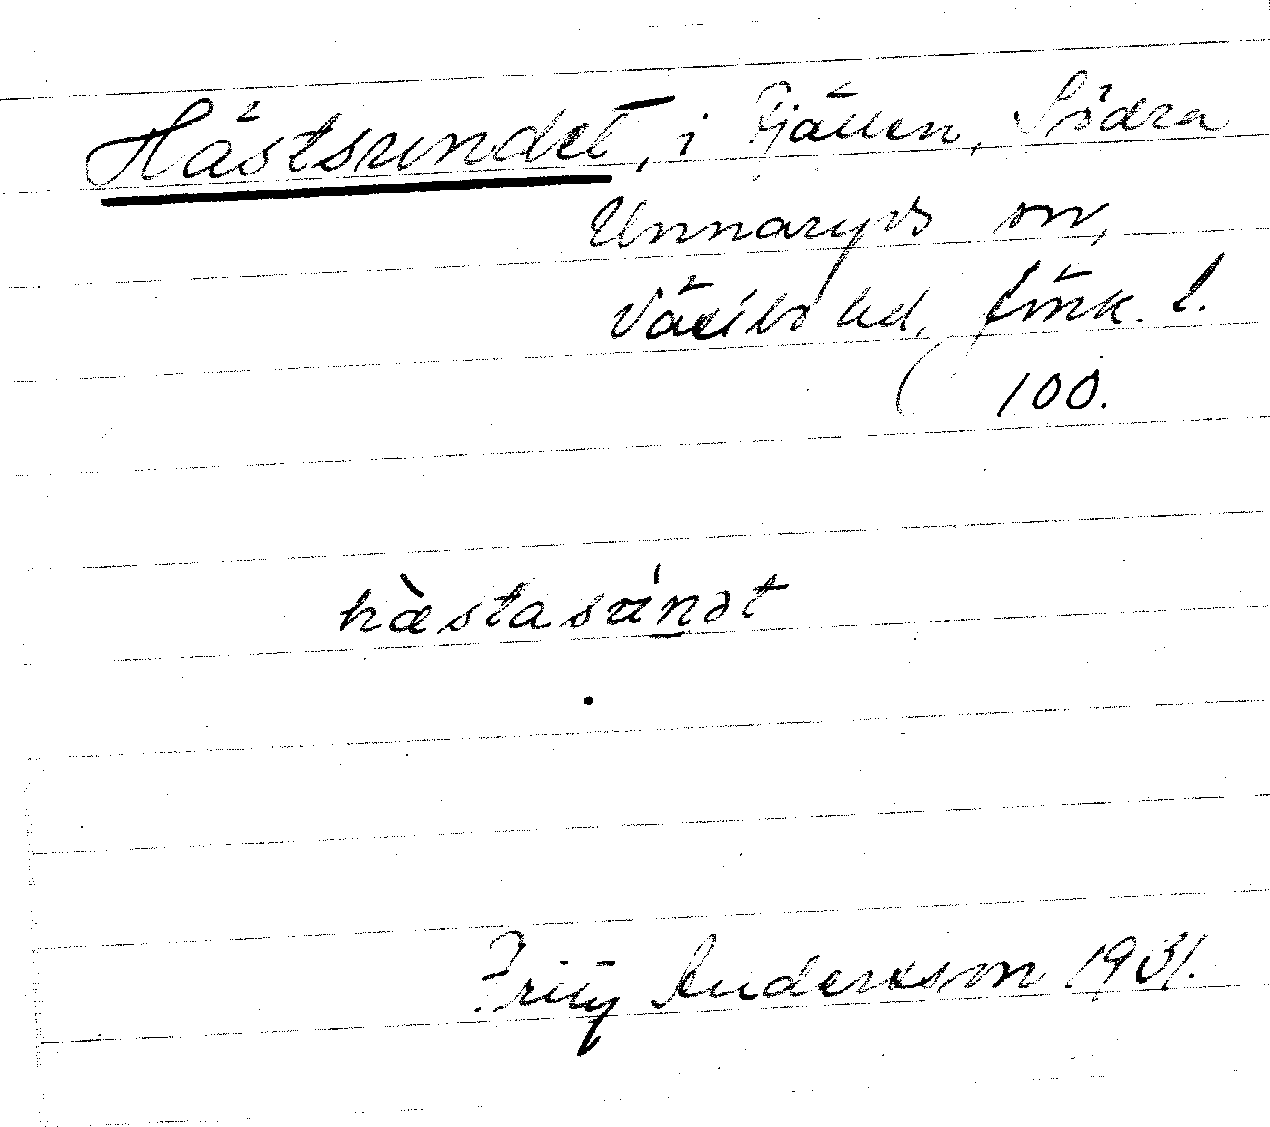 Hästsundet, i Fjällen, Södra
Unnaryds sn,
Västbo hd, Jönk. l.
100.
hæ̀stasúndt
Fritz Andersson 1931.